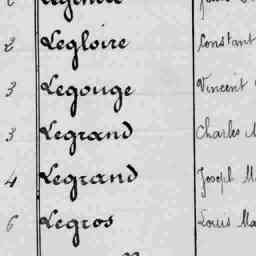 2 Legloire Constant
3 Legouge Vincent
3 Legrand Charles
4 Legrand Joseph M
6 Legros Louis Ma